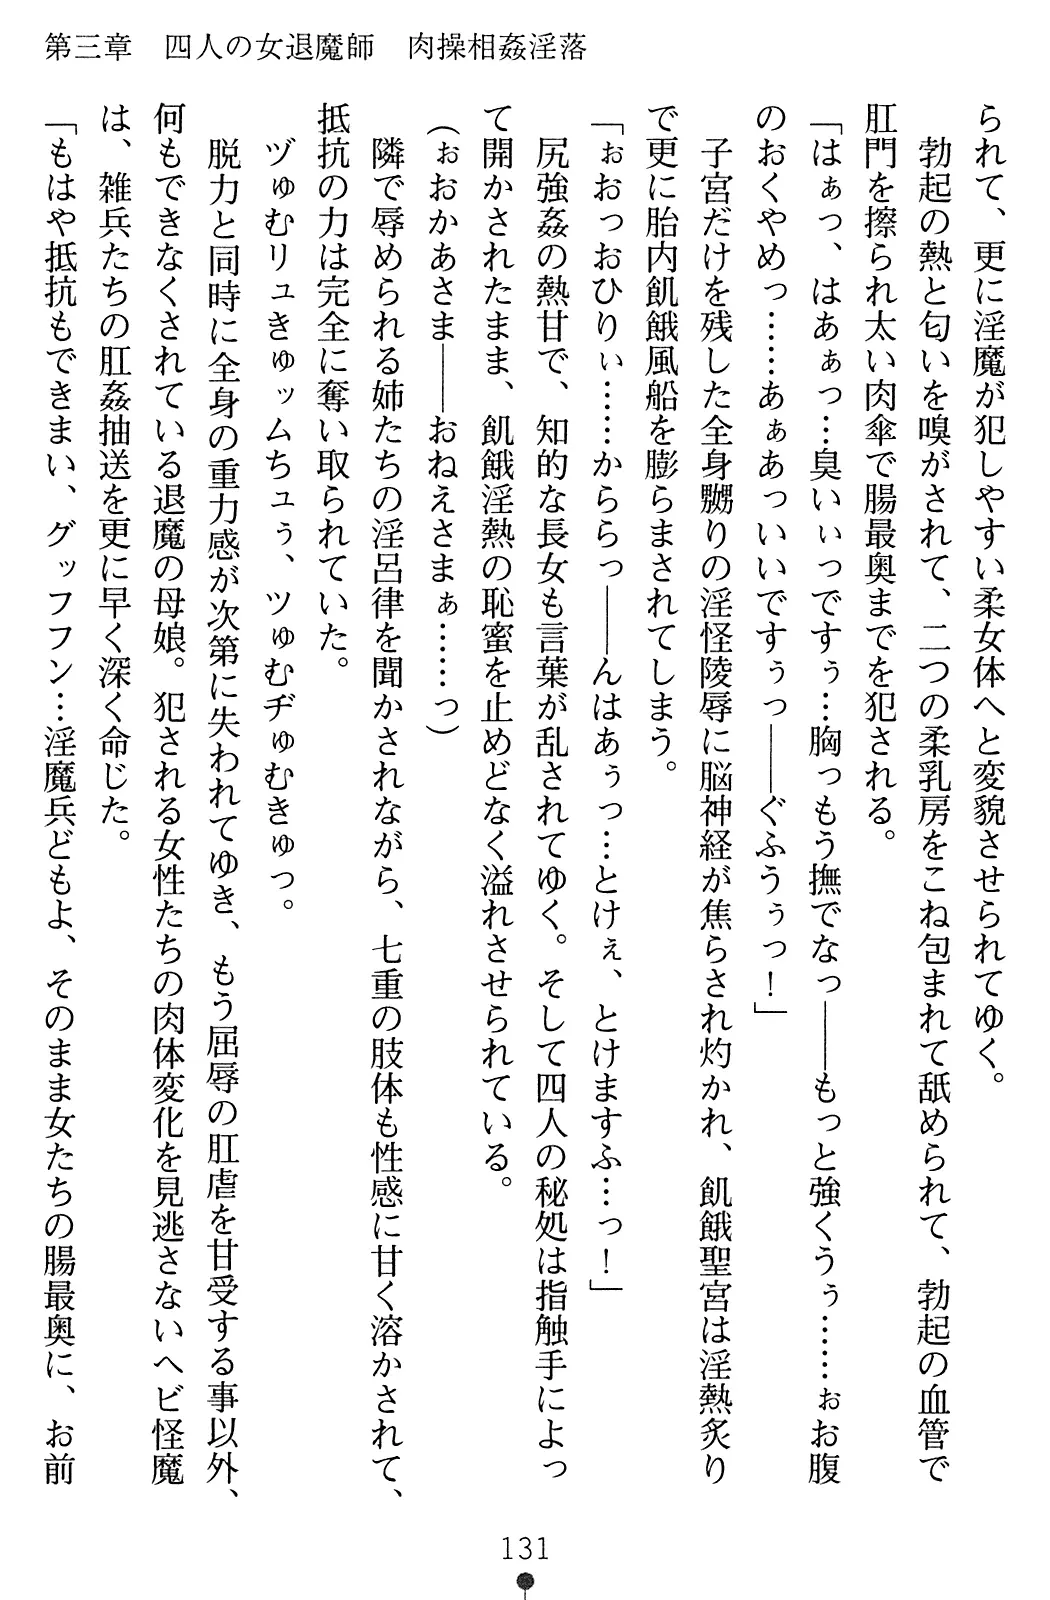 第三章　四人の女退魔師　肉操相姦淫落
られて、更に淫魔が犯しやすい柔女体へと変貌させられてゆく。
　勃起の熱と匂いを嗅がされて、二つの柔乳房をこね包まれて舐められて、勃起の血管で
肛門を擦られ太い肉傘で腸最奥までを犯される。
「はぁっ、はあぁっ…臭いぃっですぅ…胸っもう撫でなっ――もっと強くうぅ……ぉお腹
のおくやめっ……あぁあっいいですぅっ――ぐふうぅっ！」
　子宮だけを残した全身嬲りの淫怪陵辱に脳神経が焦らされ灼かれ、飢餓聖宮は淫熱炙り
で更に胎内飢餓風船を膨らまされてしまう。
「ぉおっおひりぃ……かららっ――んはあぅっ…とけぇ、とけますふ…っ！」
　尻強姦の熱甘で、知的な長女も言葉が乱されてゆく。そして四人の秘処は指触手によっ
て開かされたまま、飢餓淫熱の恥蜜を止めどなく溢れさせられている。
（ぉおかあさま――おねえさまぁ……っ）
　隣で辱められる姉たちの淫呂律を聞かされながら、七重の肢体も性感に甘く溶かされて、
抵抗の力は完全に奪い取られていた。
　ヅゅむリュきゅッムちュぅ、ツゅむヂゅむきゅっ。
　脱力と同時に全身の重力感が次第に失われてゆき、もう屈辱の肛虐を甘受する事以外、
何もできなくされている退魔の母娘。犯される女性たちの肉体変化を見逃さないヘビ怪魔
は、雑兵たちの肛姦抽送を更に早く深く命じた。
「もはや抵抗もできまい、グッフフン…淫魔兵どもよ、そのまま女たちの腸最奥に、お前
131